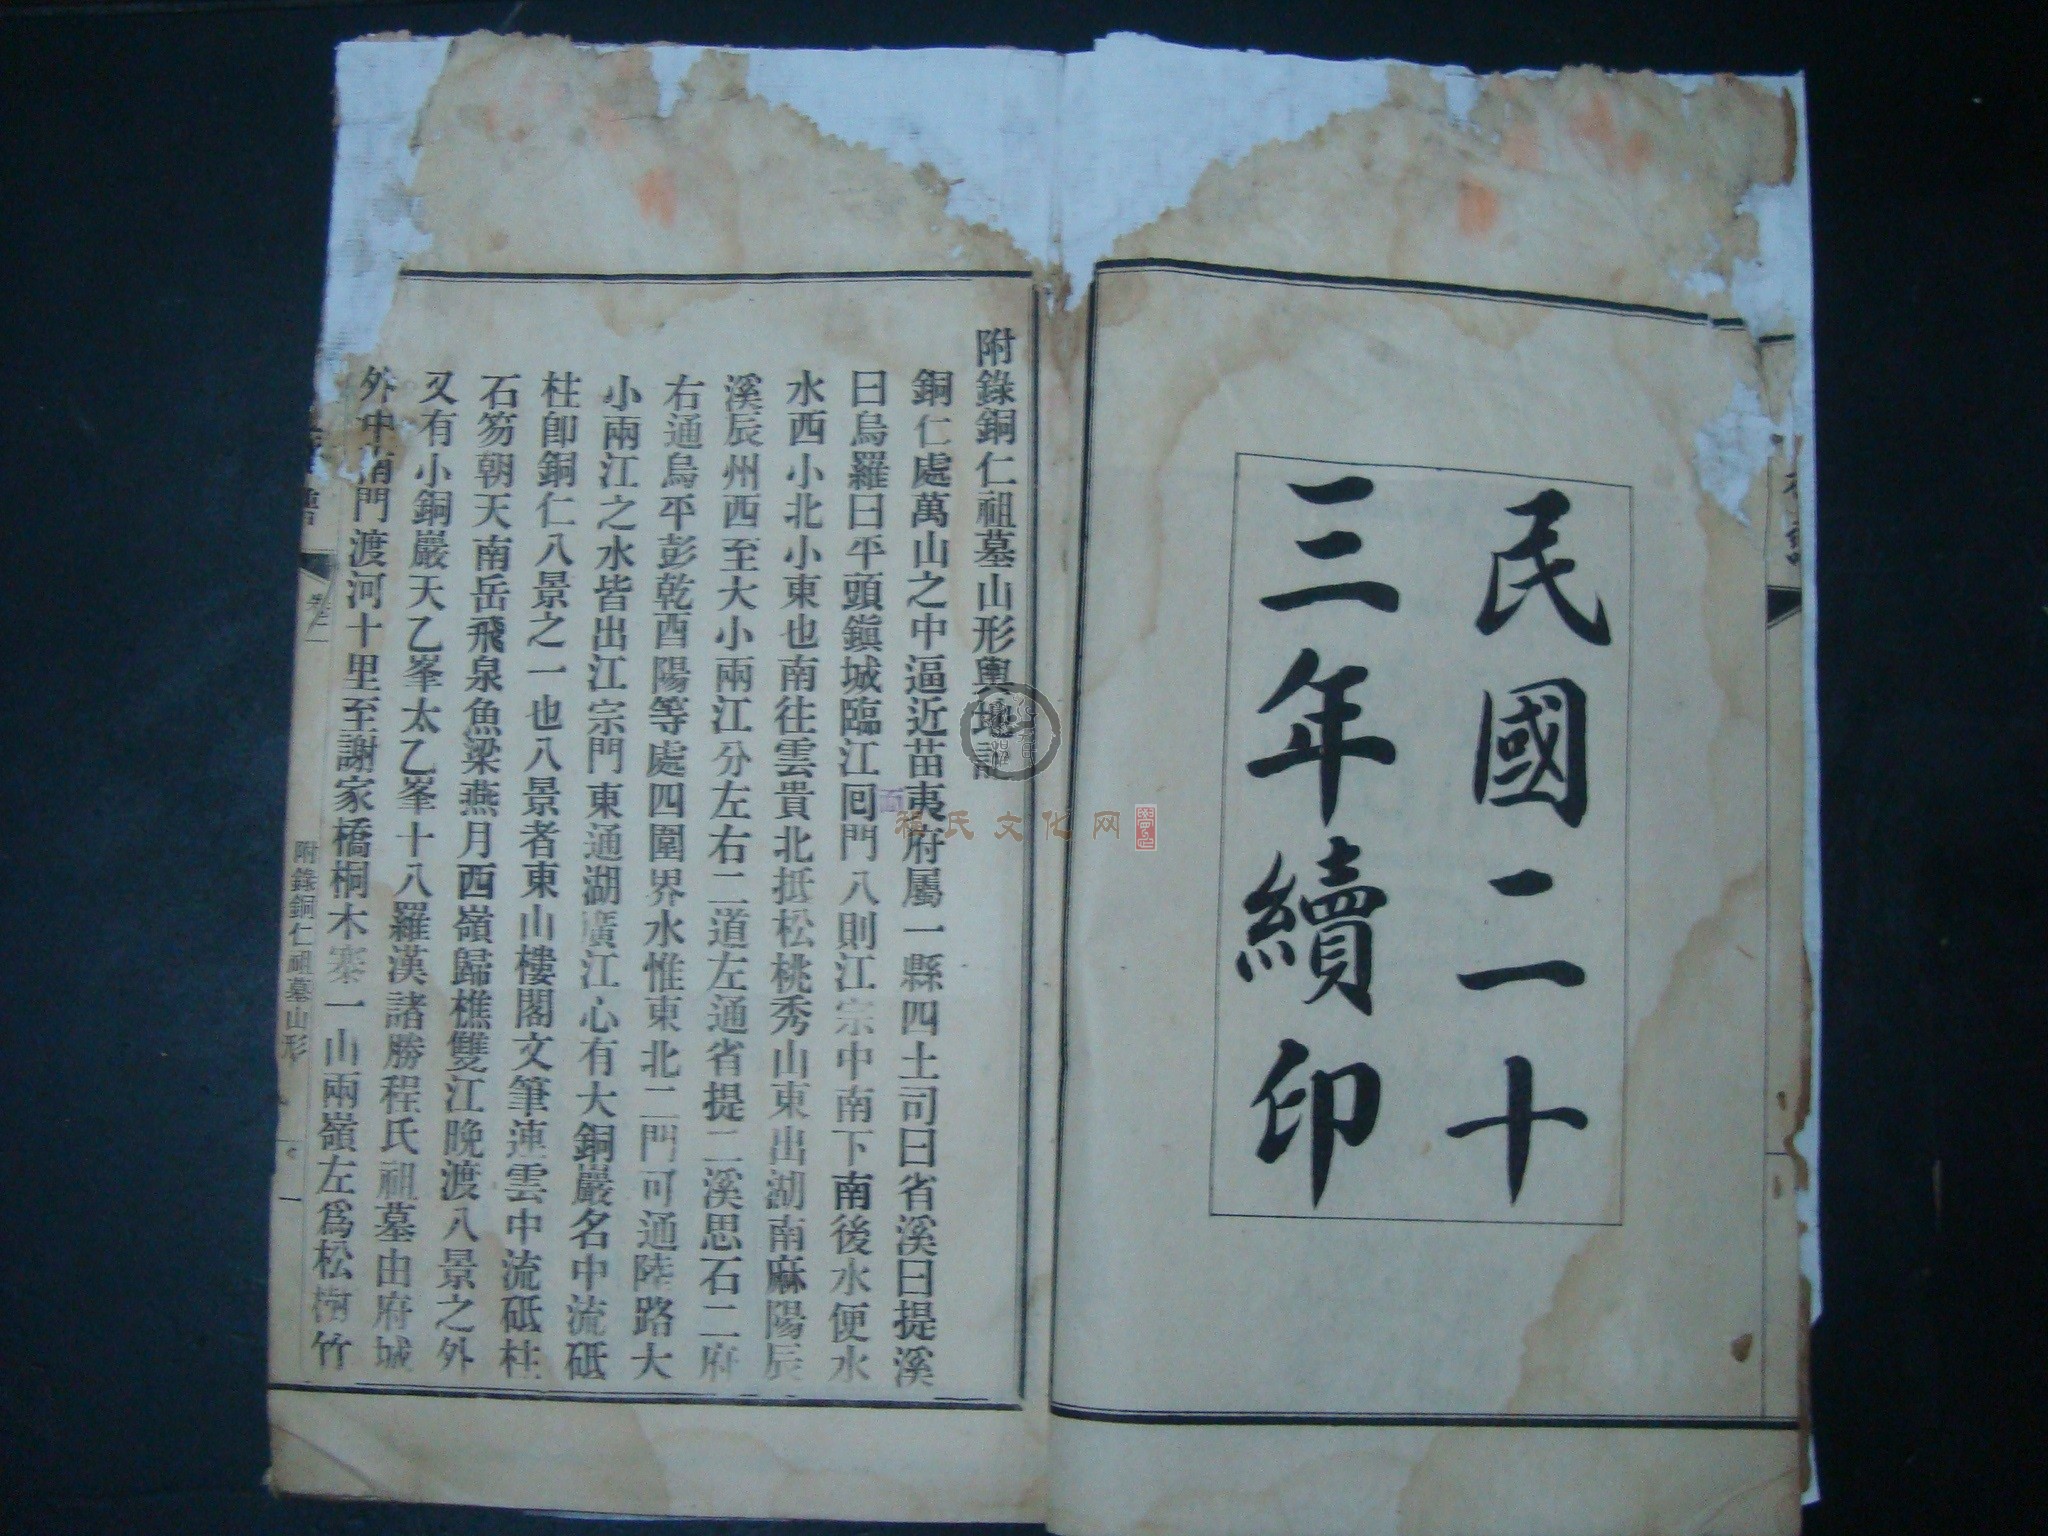 民國二十
三年續印
附錄銅仁祖墓山形輿地記
銅仁處萬山之中逼近苗夷府屬一縣四土司曰省溪曰提溪
曰烏羅曰平頭鎭城臨江囘門八則江宗中南下南後水便水
水西小北小東也南往雲貴北抵松桃秀山東出湖南麻陽辰
溪辰州西至大小兩江分左右二道左通省提二溪思石二府
右通烏平彭乾酉陽等處四圍界水惟東北二門可通陸路大
小兩江之水皆出江宗門東通湖廣江心有大銅巖名中流砥
柱卽銅仁八景之一也八景者東山樓閣文筆連雲中流砥柱
石笏朝天南岳飛泉魚梁燕月西嶺歸樵雙江晚渡八景之外
又有小銅巖天乙峯太乙峯十八羅漢諸勝程氏祖墓由府城
外中南門渡河十里至謝家橋桐木寨一山兩嶺左爲松樹竹
卷二
附錄銅仁祖墓山形
一
程氏文化网